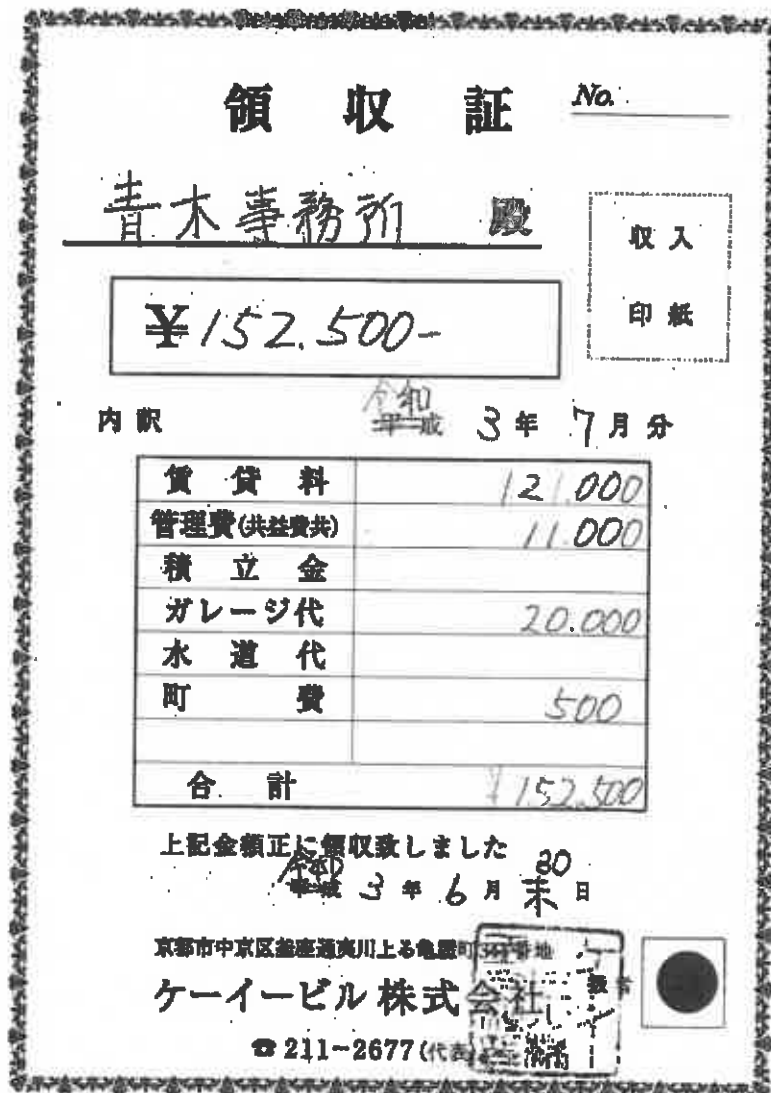 領収証 No.
青木事務所 殿
収入
印紙
¥152.500-
内訳 令和 平成 3年 7月分
賃貸料 121.000
管理費(共益費共) 11.000
積立金
ガレージ代 20.000
水道代
町費 500
合計 ¥152.500
上記金額正に領収致しました
令和 平成 3年 6月 末 30日
京都市中京区釜座通夷川上る亀屋町 番地
ケーイービル株式会社
☎211-2677(代表)